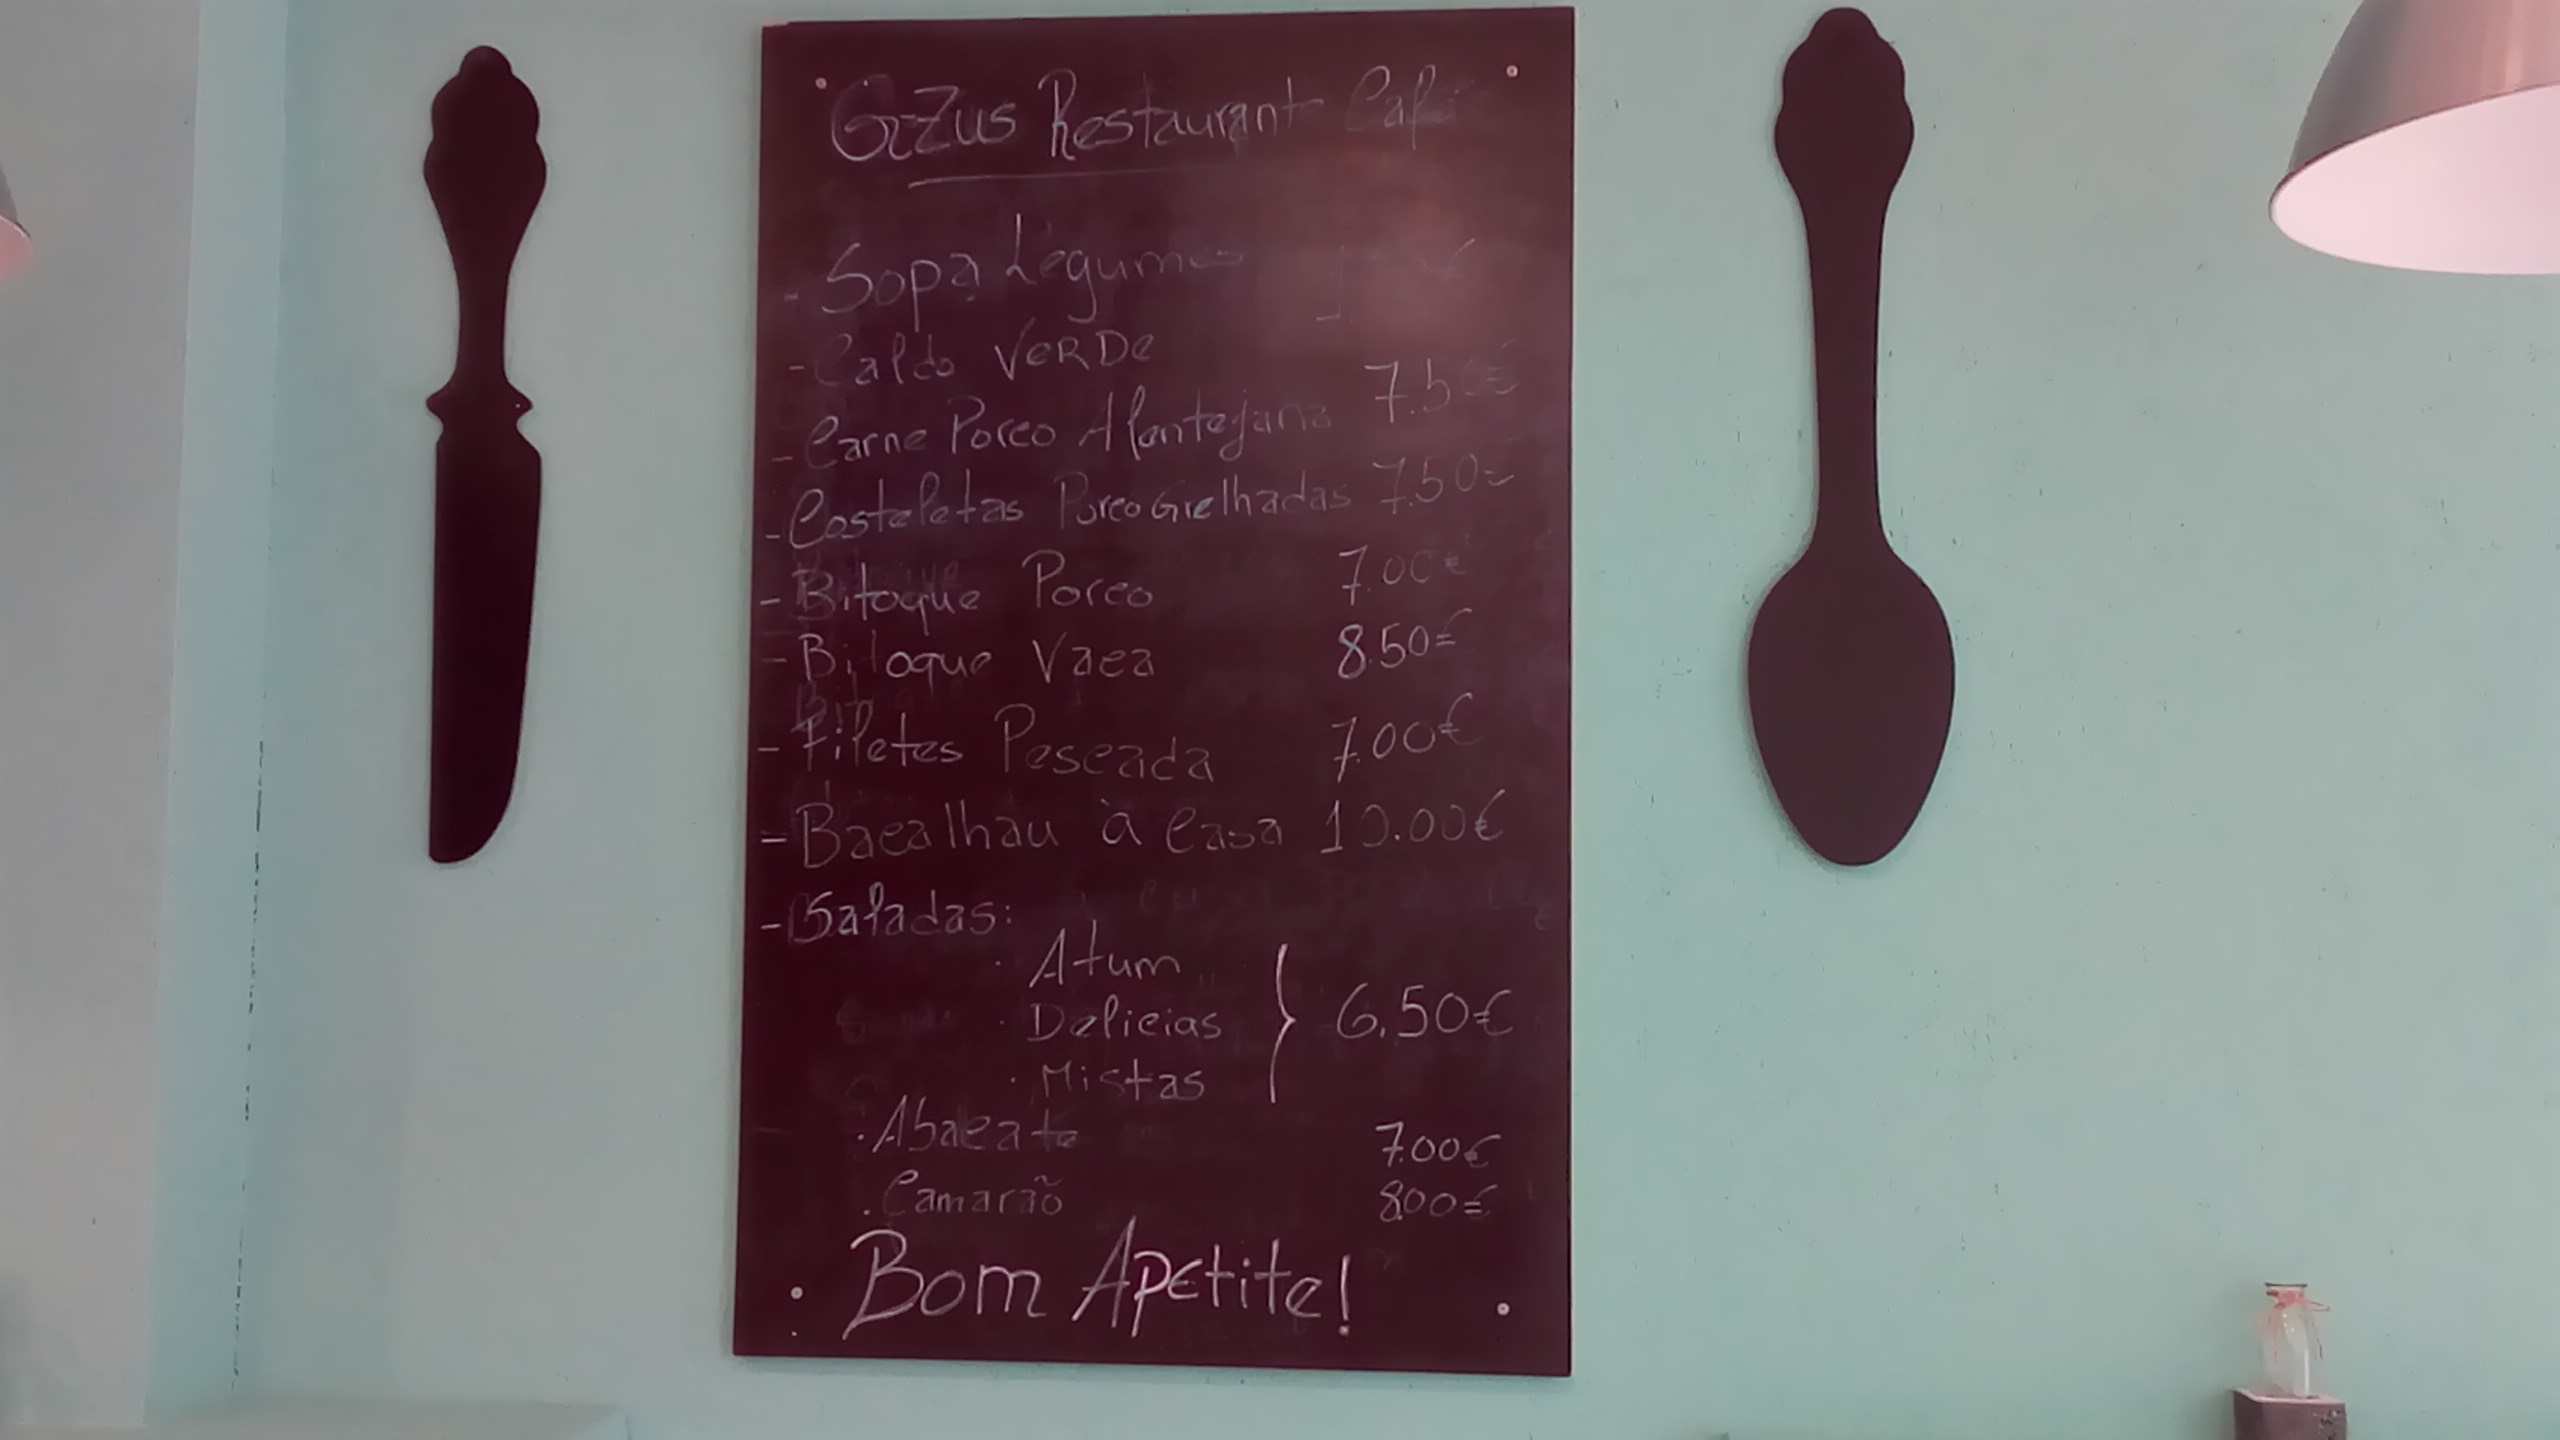 GrZus Restaurant Café
- Sopa Legumes
- Caldo VERDe
- Carne Porco Alentejana 7.50€
- Costeletas Porco Grelhadas 7.50€
- Bitoque Porco 7.00€
- Bitoque Vaca 8.50€
- Filetes Pescada 7.00€
- Bacalhau à Casa 10.00€
- Saladas:
· Atum
· Delicias } 6.50€
· Mistas
· Abacate 7.00€
· Camarão 8.00€
Bom Apetite!